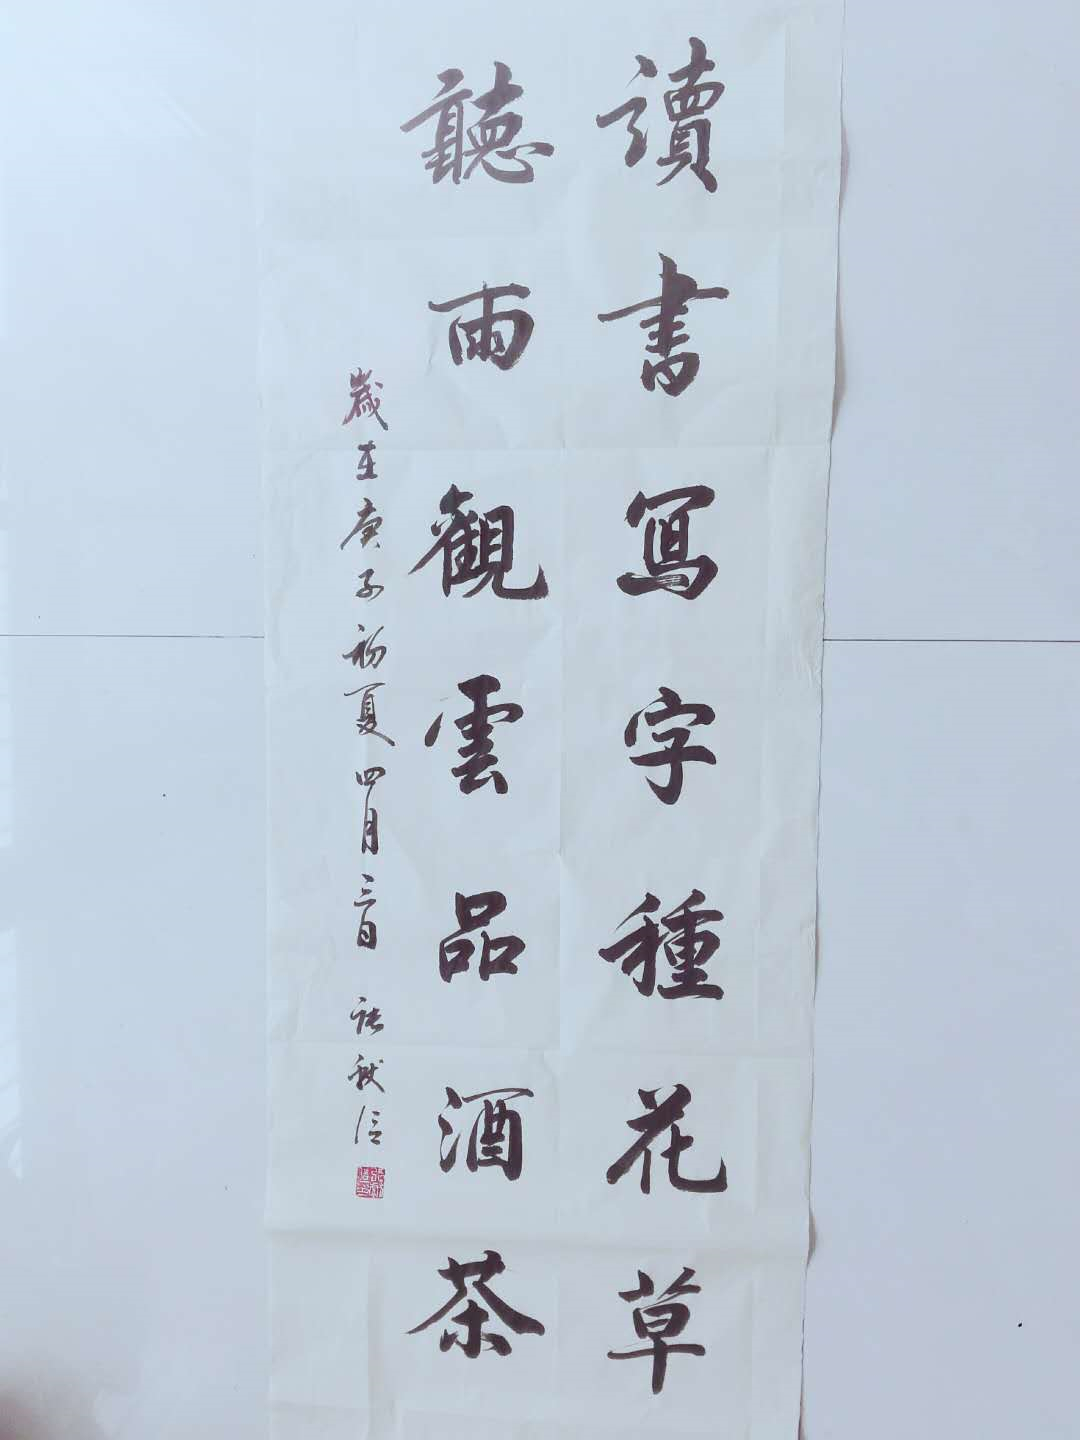 讀書寫字種花草
聽雨観雲品酒茶
歲在庚子初夏四月三日